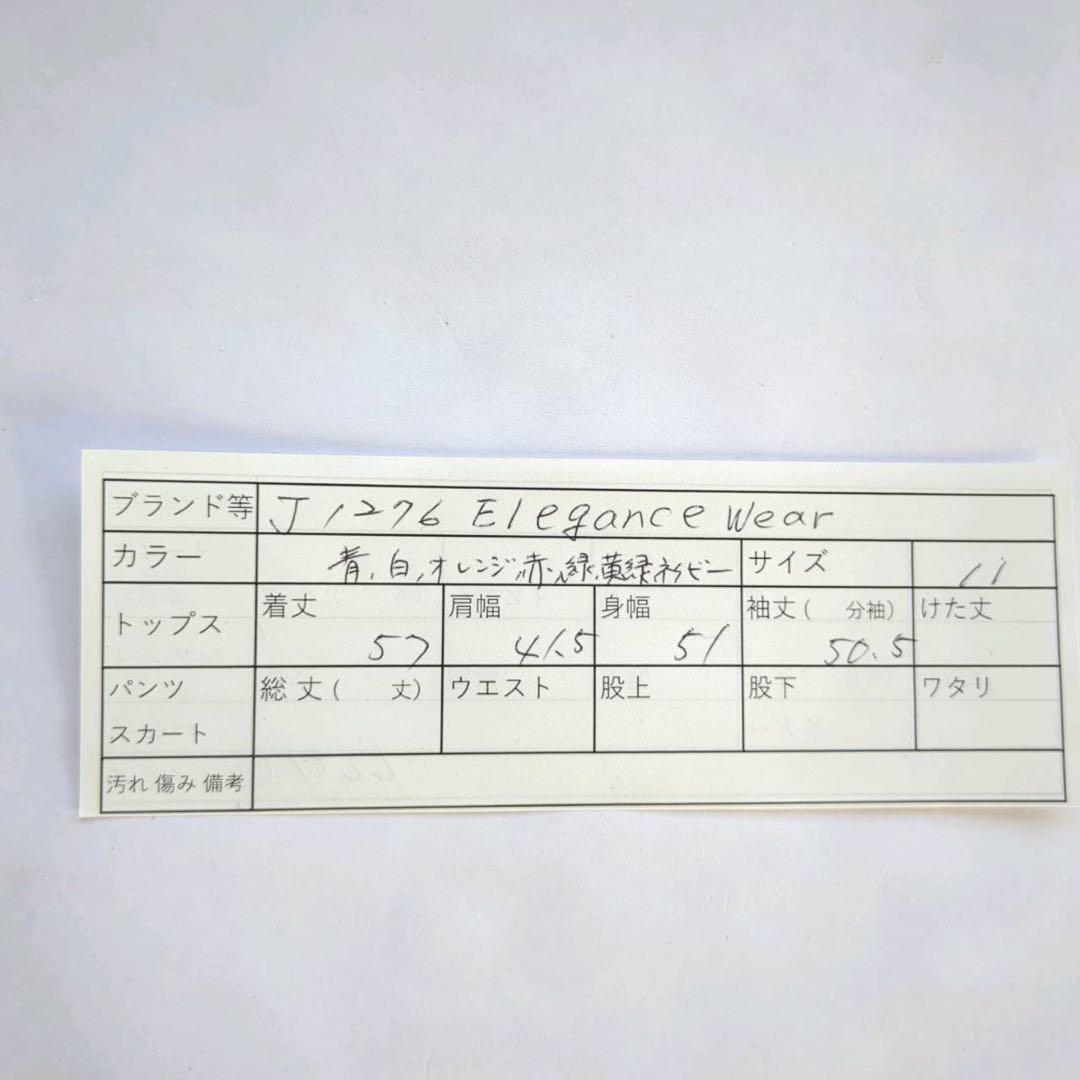 ブランド等 J1276 Elegance Wear
カラー 青,白,オレンジ,赤,緑,黄緑,ネイビー サイズ 11
トップス 着丈 57 肩幅 41.5 身幅 51 袖丈( 分袖) 50.5 けた丈
パンツ 総丈( 丈) ウエスト 股上 股下 ワタリ
スカート
汚れ 傷み 備考